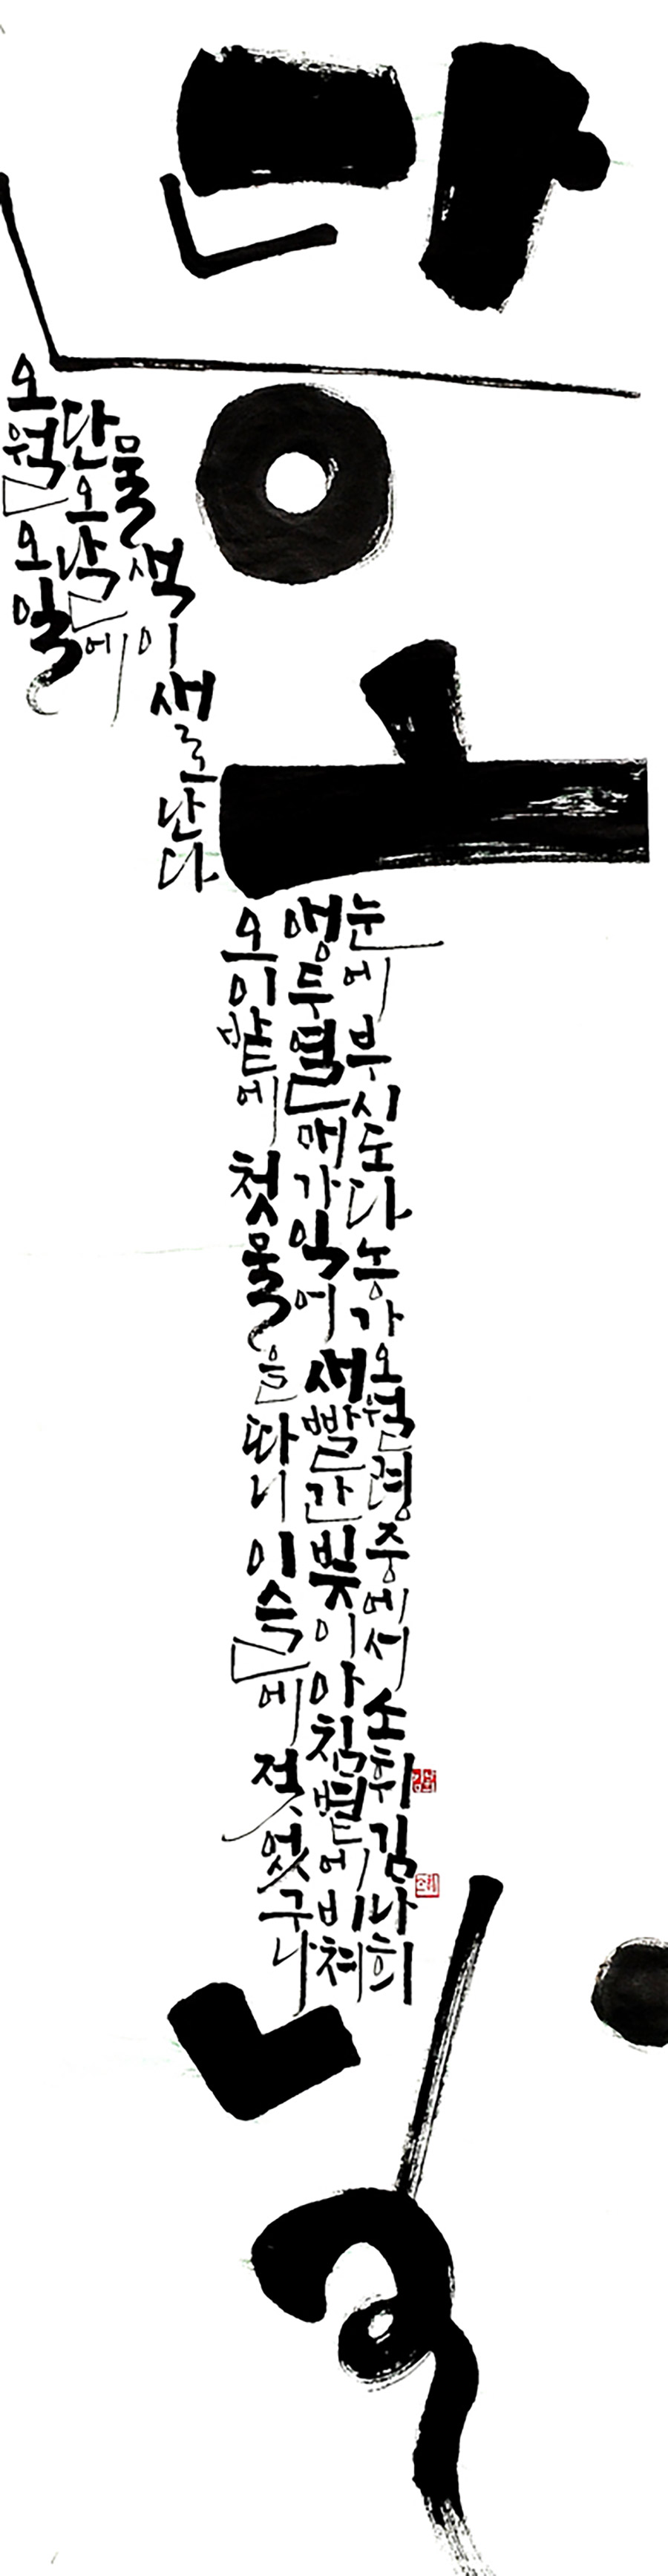 단오날
오월 오일
단오날에
물색이 새로 난다
오이밭에 첫물을 따니 이슬에 젖었구나
앵두 열매가 익어 새빨간 빛이 아침볕에 비쳐
눈에 부시도다 농가오월령 중에서 소휘 김나희